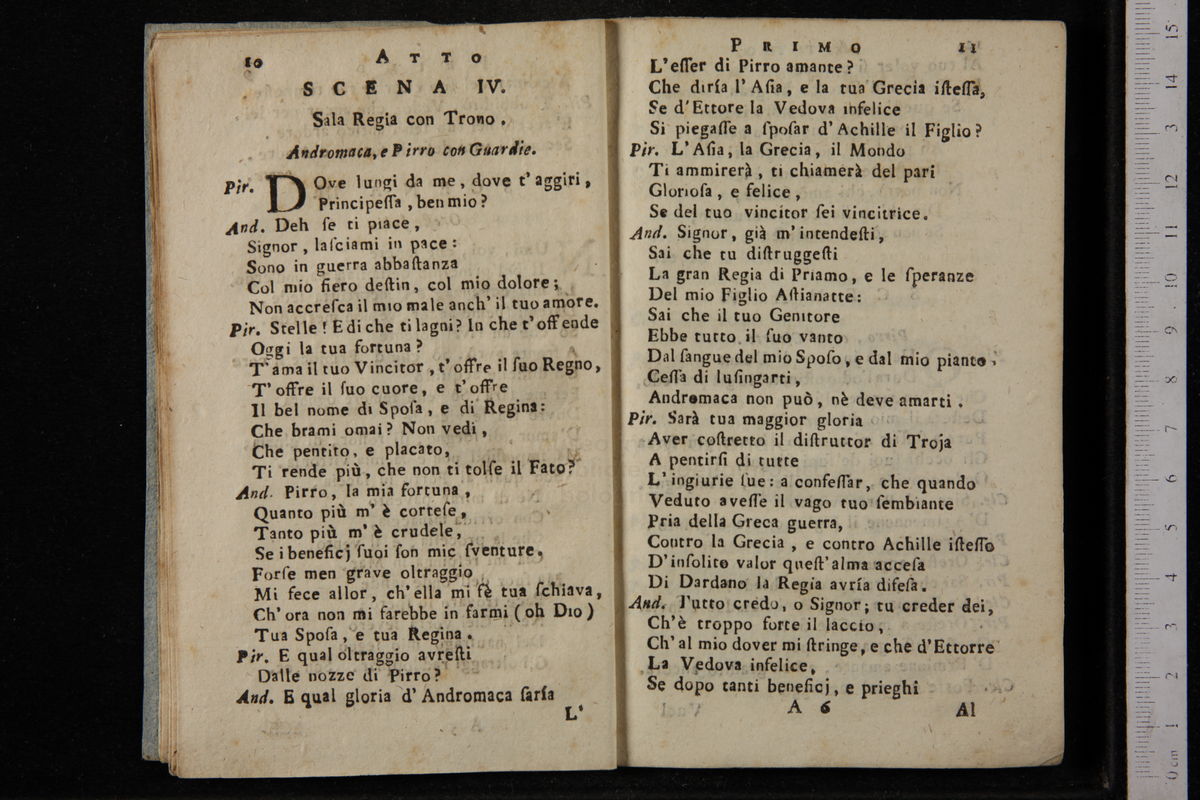 10 ATTO
SCENA IV.
Sala Regia con Trono.
Andromaca, e Pirro con Guardie.
Pir. DOve lungi da me, dove t'aggiri,
Principeſſa, ben mio?
And. Deh ſe ti piace,
Signor, laſciami in pace:
Sono in guerra abbaſtanza
Col mio fiero deſtin, col mio dolore;
Non accreſca il mio male anch' il tuo amore.
Pir. Stelle! E di che ti lagni? In che t'offende
Oggi la tua fortuna?
T'ama il tuo Vincitor, t'offre il ſuo Regno,
T'offre il ſuo cuore, e t'offre
Il bel nome di Spoſa, e di Regina:
Che brami omai? Non vedi,
Che pentito, e placato,
Ti rende più, che non ti tolſe il Fato?
And. Pirro, la mia fortuna,
Quanto più m'è corteſe,
Tanto più m'è crudele,
Se i beneficj ſuoi ſon mie ſventure.
Forſe men grave oltraggio
Mi fece allor, ch'ella mi fè tua ſchiava,
Ch'ora non mi farebbe in farmi (oh Dio)
Tua Spoſa, e tua Regina.
Pir. E qual oltraggio avreſti
Dalle nozze di Pirro?
And. E qual gloria d'Andromaca ſaría
L'
PRIMO 11
L'eſſer di Pirro amante?
Che diría l'Aſia, e la tua Grecia iſteſſa,
Se d'Ettore la Vedova infelice
Si piegaſſe a ſpoſar d'Achille il Figlio?
Pir. L'Aſia, la Grecia, il Mondo
Ti ammirerà, ti chiamerà del pari
Glorioſa, e felice,
Se del tuo vincitor ſei vincitrice.
And. Signor, già m'intendeſti,
Sai che tu diſtruggeſti
La gran Regia di Priamo, e le ſperanze
Del mio Figlio Aſtianatte:
Sai che il tuo Genitore
Ebbe tutto il ſuo vanto
Dal ſangue del mio Spoſo, e dal mio pianto.
Ceſſa di luſingarti,
Andromaca non può, nè deve amarti.
Pir. Sarà tua maggior gloria
Aver coſtretto il diſtruttor di Troja
A pentirſi di tutte
L'ingiurie ſue: a confeſſar, che quando
Veduto aveſſe il vago tuo ſembiante
Pria della Greca guerra,
Contro la Grecia, e contro Achille iſteſſo
D'inſolito valor queſt'alma acceſa
Di Dardano la Regía avría difeſa.
And. Tutto credo, o Signor; tu creder dei,
Ch'è troppo forte il laccio,
Ch'al mio dover mi ſtringe, e che d'Ettorre
La Vedova infelice,
Se dopo tanti beneficj, e prieghi
A 6 Al
15
14
13
12
11
10
9
8
7
6
5
4
3
2
1
0 cm